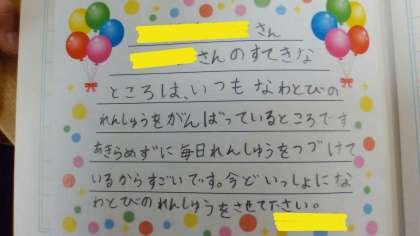 さん
さんのすてきな
ところは、いつもなわとびの
れんしゅうをがんばっているところです
あきらめずに毎日れんしゅうをつづけて
いるからすごいです。今どいっしょにな
わとびのれんしゅうをさせてださい。